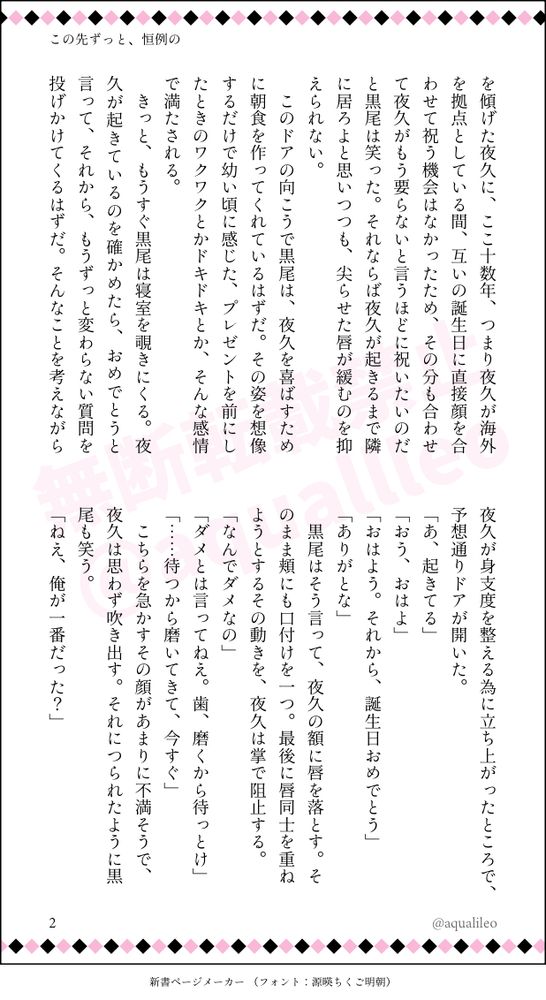 この先ずっと、恒例の
を傾げた夜久に、ここ十数年、つまり夜久が海外
を拠点としている間、互いの誕生日に直接顔を合
わせて祝う機会はなかったため、その分も合わせ
て夜久がもう要らないと言うほどに祝いたいのだ
と黒尾は笑った。それならば夜久が起きるまで隣
に居ろよと思いつつも、尖らせた唇が緩むのを抑
えられない。
このドアの向こうで黒尾は、夜久を喜ばすため
に朝食を作ってくれているはずだ。その姿を想像
するだけで幼い頃に感じた、プレゼントを前にし
たときのワクワクとかドキドキとか、そんな感情
で満たされる。
きっと、もうすぐ黒尾は寝室を覗きにくる。夜
久が起きているのを確かめたら、おめでとうと
言って、それから、もうずっと変わらない質問を
投げかけてくるはずだ。そんなことを考えながら
夜久が身支度を整える為に立ち上がったところで、
予想通りドアが開いた。
「あ、起きてる」
「おう、おはよ」
「おはよう。それから、誕生日おめでとう」
「ありがとな」
黒尾はそう言って、夜久の額に唇を落とす。そ
のまま頬にも口付けを一つ。最後に唇同士を重ね
ようとするその動きを、夜久は掌で阻止する。
「なんでダメなの」
「ダメとは言ってねえ。歯、磨くから待っとけ」
「……待つから磨いてきて、今すぐ」
こちらを急かすその顔があまりに不満そうで、
夜久は思わず吹き出す。それにつられたように黒
尾も笑う。
「ねえ、俺が一番だった？」
無断転載禁止
@aqualileo
2
@aqualileo
新書ページメーカー （フォント：源暎ちくご明朝）